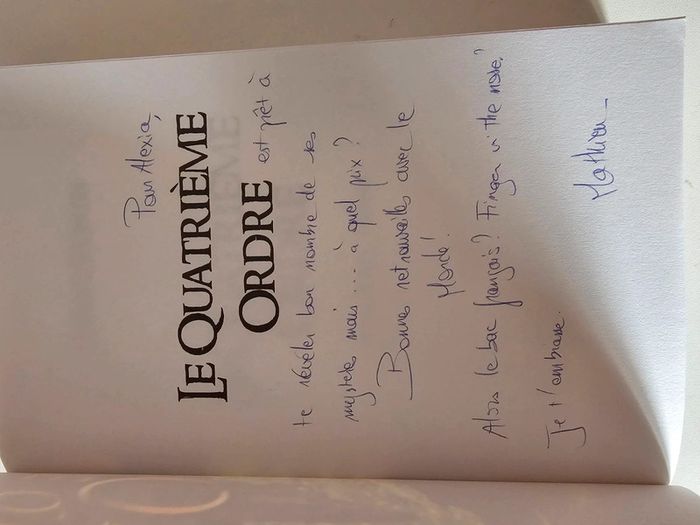 Pour Alexia,
LE QUATRIÈME
ORDRE est prêt à
te révéler bon nombre de ses
mystères mais... à quel prix ?
Bonnes retrouvailles avec le
Monde !
Alors le bac français ? Finger in the nose ?
Je t'embrasse.
Mathieu